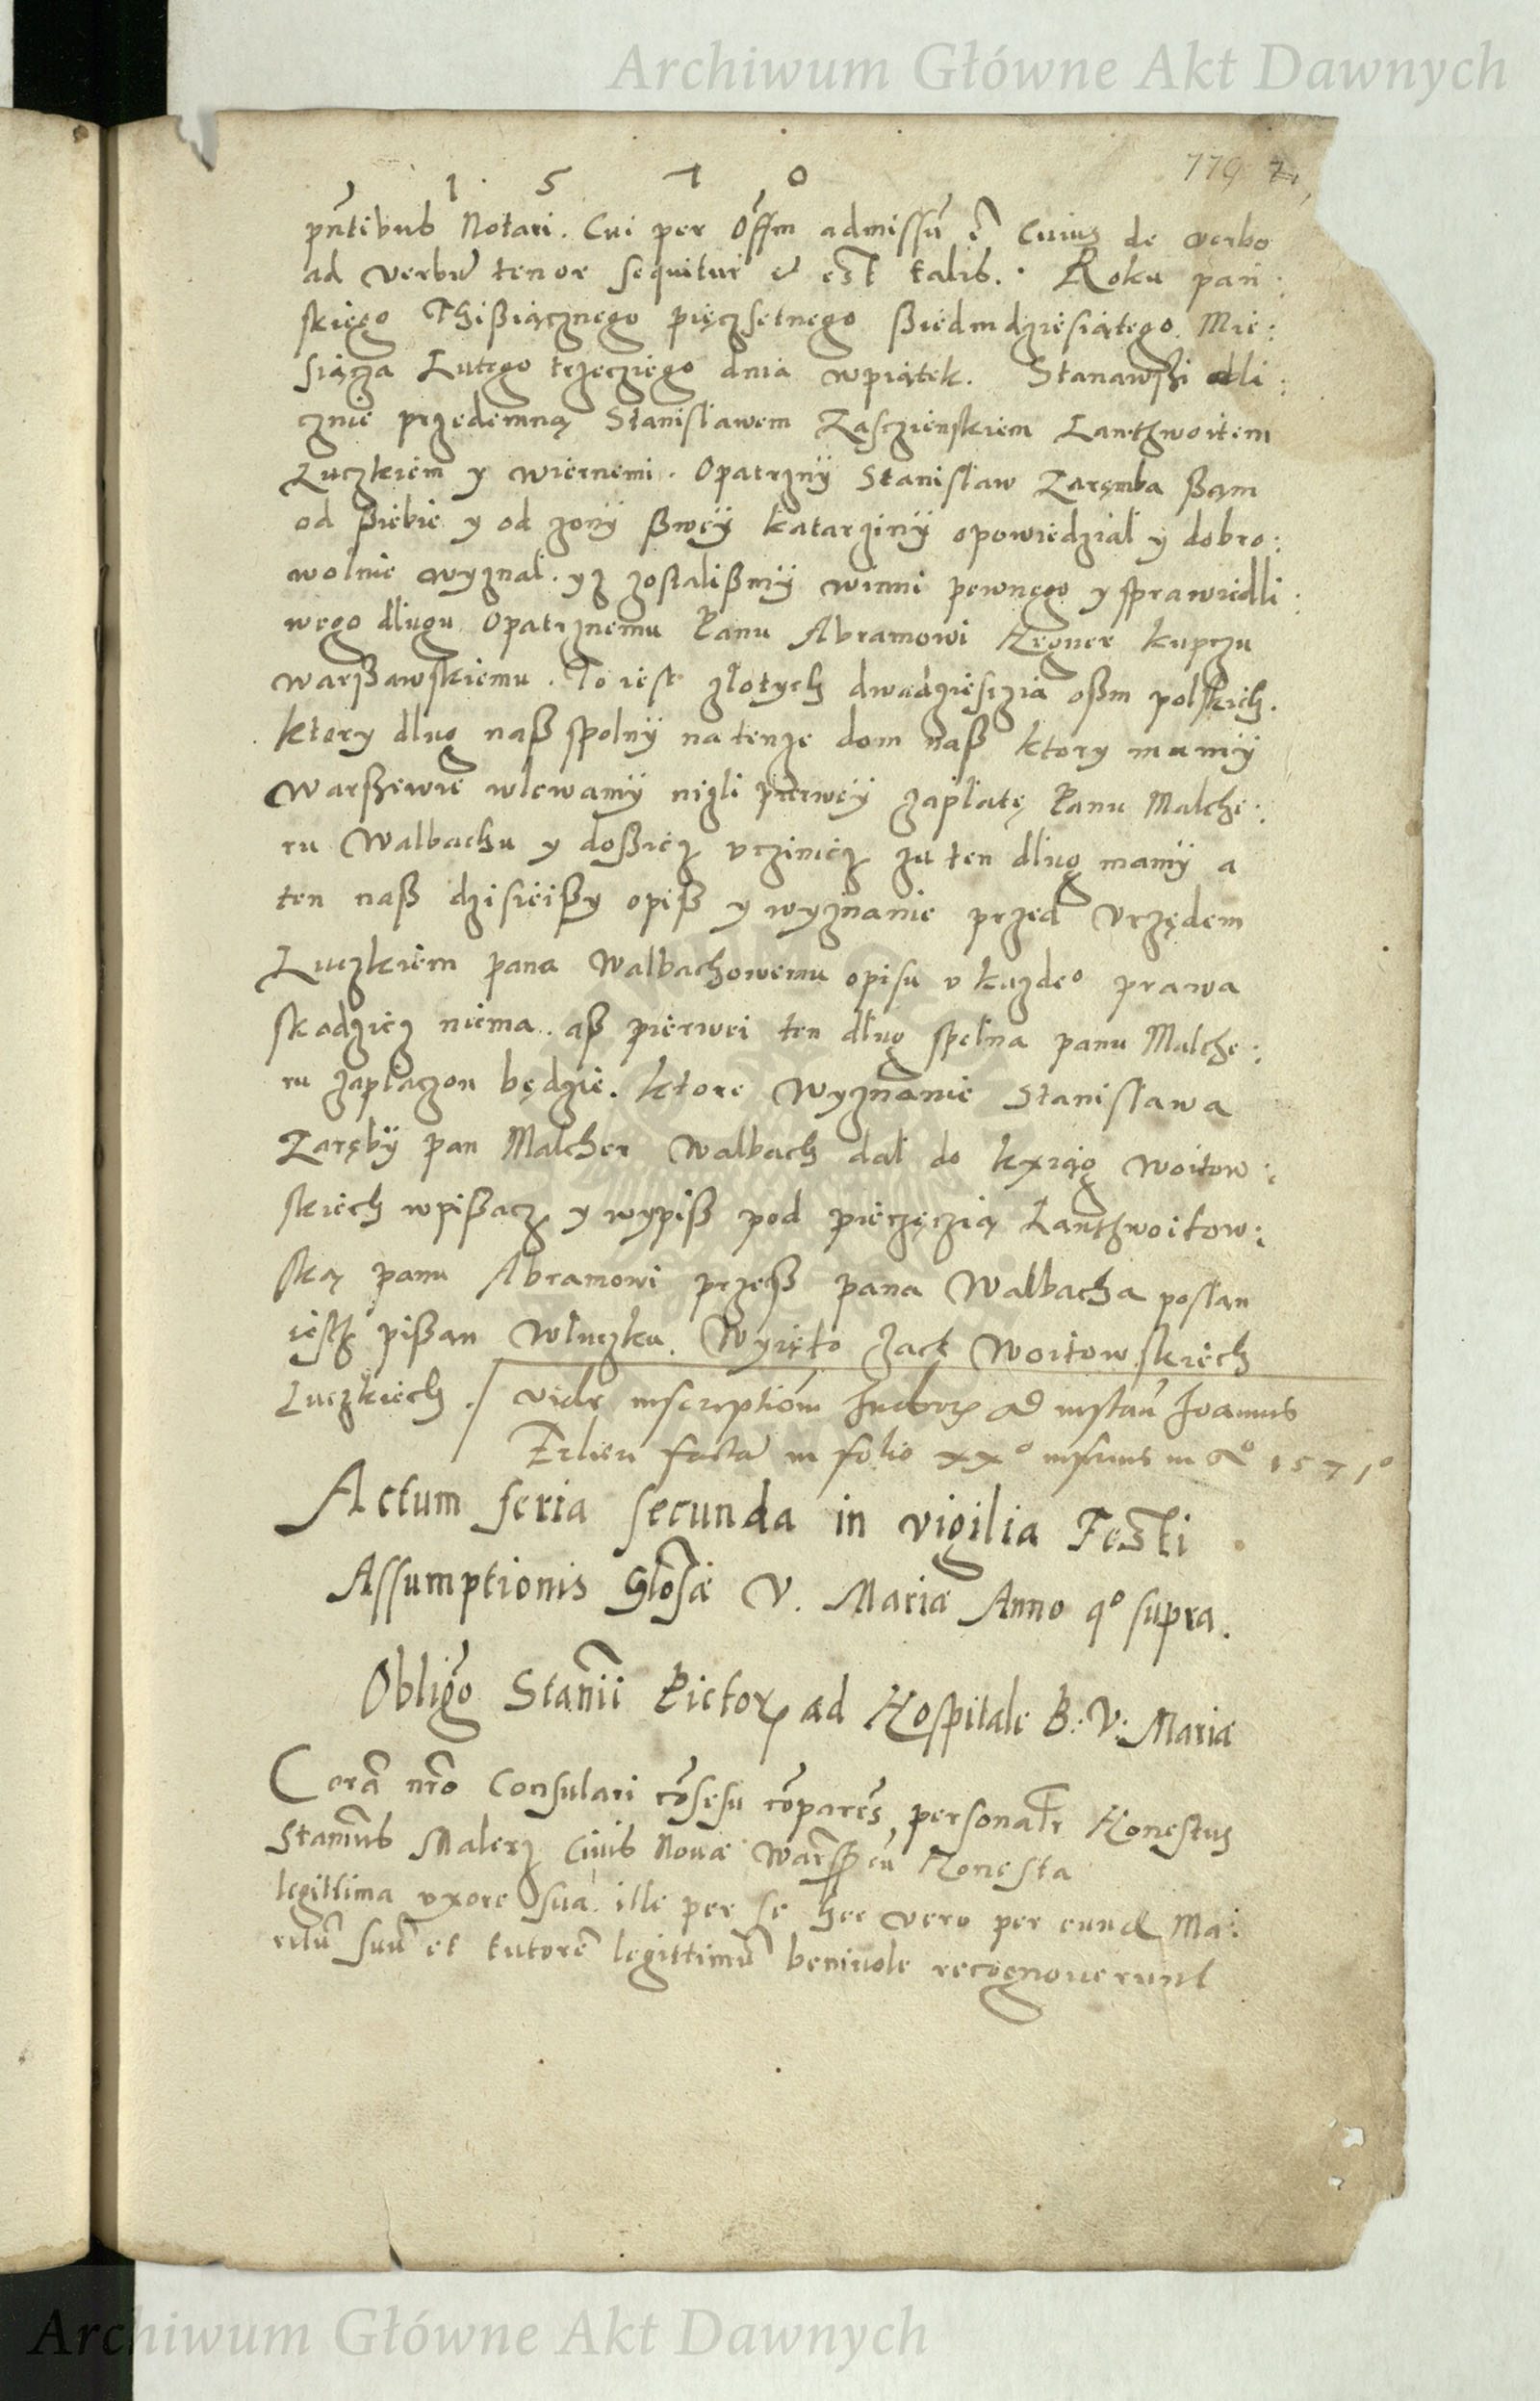 Archiwum Główne Akt Dawnych
779
1 5 7 0
pn̄tibus Notari. Cui per Offm admissū ē Cuius de verbo
ad verbū tenor sequitur & est talis. Roku pań:
skięgo Thißiącznego pięczsetnego ßiedmdzięsiątego. Mie:
siącza Lutego trzecziego dnia wpiątek. Stanawszi obli:
cznie przedemną Stanisławem Łąsczienskiem Lanthwoitem
Łuczkiem y wiernemi. Opatrzny Stanisław Zaręmba ßąm
od ßiebie y od zony ßwey katarziny opowiedział y dobro:
wolnie wyznał. yz zostalißmy winni pewnego y sprawiedli:
wego długu Opatrznemu Panu Abramowi Kroner kupczu
warßawskiemu. To iest złotych dwadzięsczia oßm polskich.
ktory dlug naß spolny na tenze dom naß ktory mamy
warßewie wlewamy nizli pierwey zapłatę Panu Malche:
ru Walbachu y doßicz vczinicz za ten dlug mamy a
ten naß dzisieißy opiß y wyznanie przed Vrzędem
Łuczkiem pana Walbachowemu opisu v kazde° prawa
skodzicz niema. aß pierwei ten dług spelna panu Malche:
ru zapłaczon będzie. ktore wyznanie Stanisława
Zaręby pan Malcher Walbach dał do kxiąg woitow:
skiech wpißacz y wypiß pod pieczęczią Lanthwoitow:
ską panu Abramowi przeß pana Walbacha posłan
iest pißan Włuczku. Wyięto zact Woitowskiech
Łuczkiech. / vide inscriptiōm ad instān Joannis
Erlieri factā in folio xx° inferius in A° 1571°
Actum feria secunda in vigilia Festi
Assumptionis Glōsæ V. Mariæ Anno q° supra.
Obligō Stanīi Pictor ad Hospitale B: V: Mariæ
Corā nr̄o Consulari cōsesu cōparēs personalr Honestus
Stanīus Malerz Ciuis Nouæ Wars cū Honesta
legittima vxore sua ille per se hec vero per eund Ma:
ritū suū et tutorē legittimū beniuole recognouerunt
Archiwum Główne Akt Dawnych